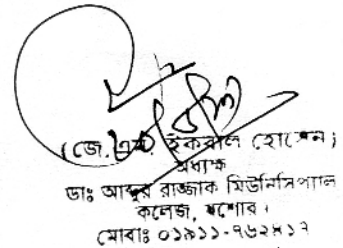 (জে, এম, ইকবাল হোসেন)
অধ্যক্ষ
ডাঃ আব্দুর রাজ্জাক মিউনিসিপ্যাল
কলেজ, যশোর।
মোবাঃ ০১৯১১-৭৬২৪১২